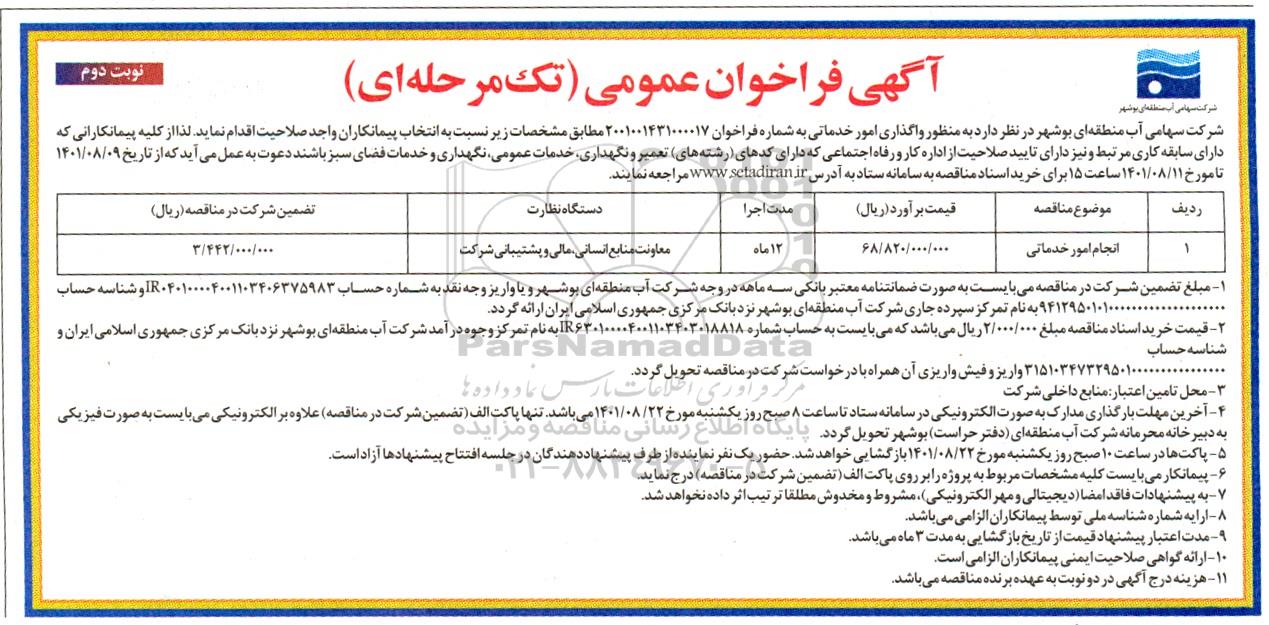 آگهی فراخوان عمومی (تک مرحله‌ای)
نوبت دوم
شرکت سهامی آب منطقه‌ای بوشهر
شرکت سهامی آب منطقه‌ای بوشهر در نظر دارد به منظور واگذاری امور خدماتی به شماره فراخوان ۲۰۰۱۰۰۱۴۳۱۰۰۰۰۱۷ مطابق مشخصات زیر نسبت به انتخاب پیمانکاران واجد صلاحیت اقدام نماید. لذا از کلیه پیمانکارانی که
دارای سابقه کاری مرتبط و نیز دارای تایید صلاحیت از اداره کار و رفاه اجتماعی که دارای کدهای (رشته‌های) تعمیر و نگهداری، خدمات عمومی، نگهداری و خدمات فضای سبز باشند دعوت به عمل می آید که از تاریخ ۱۴۰۱/۰۸/۰۹
تا مورخ ۱۴۰۱/۰۸/۱۱ ساعت ۱۵ برای خرید اسناد مناقصه به سامانه ستاد به آدرس www.setadiran.ir مراجعه نمایند.
ردیف موضوع مناقصه قیمت برآورد (ریال) مدت اجرا دستگاه نظارت تضمین شرکت در مناقصه (ریال)
۱ انجام امور خدماتی ۶۸/۸۲۰/۰۰۰/۰۰۰ ۱۲ ماه معاونت منابع انسانی، مالی و پشتیبانی شرکت ۳/۴۴۲/۰۰۰/۰۰۰
۱- مبلغ تضمین شرکت در مناقصه می‌بایست به صورت ضمانتنامه معتبر بانکی سه ماهه در وجه شرکت آب منطقه‌ای بوشهر و یا واریز وجه نقد به شماره حساب IR۰۴۰۱۰۰۰۰۴۰۰۱۱۰۳۴۰۶۳۷۵۹۸۳ و شناسه حساب
به نام تمرکز سپرده جاری شرکت آب منطقه‌ای بوشهر نزد بانک مرکزی جمهوری اسلامی ایران ارائه گردد.
۲- قیمت خرید اسناد مناقصه مبلغ ۲/۰۰۰/۰۰۰ ریال می‌باشد که می‌بایست به حساب شماره IR۶۳۰۱۰۰۰۰۴۰۰۱۱۰۳۴۰۳۰۱۸۸۱۸ به نام تمرکز وجوه درآمد شرکت آب منطقه‌ای بوشهر نزد بانک مرکزی جمهوری اسلامی ایران و
شناسه حساب
واریز و فیش واریزی آن همراه با درخواست شرکت در مناقصه تحویل گردد.
۳- محل تامین اعتبار: منابع داخلی شرکت
۴- آخرین مهلت بارگذاری مدارک به صورت الکترونیکی در سامانه ستاد تا ساعت ۸ صبح روز یکشنبه مورخ ۱۴۰۱/۰۸/۲۲ می‌باشد. تنها پاکت الف (تضمین شرکت در مناقصه) علاوه بر الکترونیکی می‌بایست به صورت فیزیکی
به دبیرخانه محرمانه شرکت آب منطقه‌ای (دفتر حراست) بوشهر تحویل گردد.
۵- پاکت‌ها در ساعت ۱۰ صبح روز یکشنبه مورخ ۱۴۰۱/۰۸/۲۲ بازگشایی خواهد شد. حضور یک نفر نماینده از طرف پیشنهاددهندگان در جلسه افتتاح پیشنهادها آزاد است.
۶- پیمانکار می‌بایست کلیه مشخصات مربوط به پروژه را بر روی پاکت الف (تضمین شرکت در مناقصه) درج نماید.
۷- به پیشنهادات فاقد امضا (دیجیتالی و مهر الکترونیکی)، مشروط و مخدوش مطلقا ترتیب اثر داده نخواهد شد.
۸- ارایه شماره شناسه ملی توسط پیمانکاران الزامی می‌باشد.
۹- مدت اعتبار پیشنهاد قیمت از تاریخ بازگشایی به مدت ۳ ماه می‌باشد.
۱۰- ارائه گواهی صلاحیت ایمنی پیمانکاران الزامی است.
۱۱- هزینه درج آگهی در دو نوبت به عهده برنده مناقصه می‌باشد.
ParsNamadData
مرکز فرآوری اطلاعات پارس نماد داده‌ها
پایگاه اطلاع رسانی مناقصه و مزایده
۰۲۱-۸۸۳۴۹۶۷۰-۵